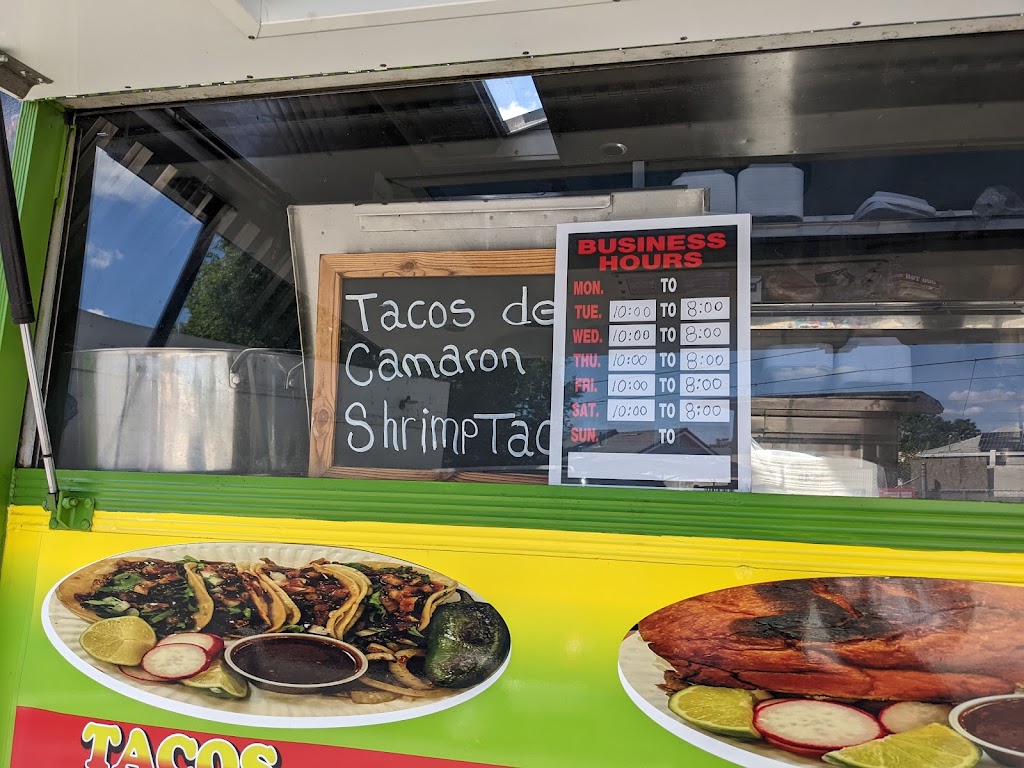 Tacos de
Camaron
Shrimp Tac
BUSINESS
HOURS
MON. TO
TUE. 10:00 TO 8:00
WED. 10:00 TO 8:00
THU. 10:00 TO 8:00
FRI. 10:00 TO 8:00
SAT. 10:00 TO 8:00
SUN. TO
HOT DOG
TACOS